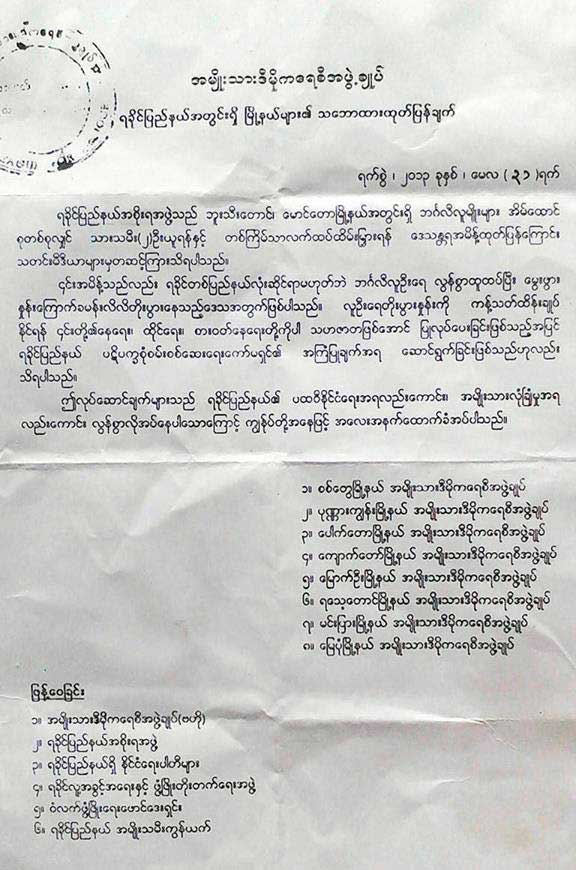 အမျိုးသားဒီမိုကရေစီအဖွဲ့ချုပ်
ရခိုင်ပြည်နယ်အတွင်းရှိ မြို့နယ်များ၏ သဘောထားထုတ်ပြန်ချက်
ရက်စွဲ ၊ ၂၀၁၃ ခုနှစ် ၊ မေလ ( ၃၁ )ရက်
ရခိုင်ပြည်နယ်အစိုးရအဖွဲ့သည် ဘူးသီးတောင်၊ မောင်တောမြို့နယ်အတွင်းရှိ ဘင်္ဂလီလူမျိုးများ အိမ်ထောင်
စုတစ်စုလျှင် သားသမီး(၂)ဦးယူရန်နှင့် တစ်ကြိမ်သာလက်ထပ်ထိမ်းမြားရန် ဒေသန္တရအမိန့်ထုတ်ပြန်ကြောင်း
သတင်းမီဒီယာများမှတဆင့်ကြားသိရပါသည်။
၎င်းအမိန့်သည်လည်း ရခိုင်တစ်ပြည်နယ်လုံးဆိုင်ရာမဟုတ်ဘဲ ဘင်္ဂလီလူဦးရေ လွန်စွာထူထပ်ပြီး မွေးဖွား
နှုန်းကြောက်ခမန်းလိလိတိုးပွားနေသည့်ဒေသအတွက်ဖြစ်ပါသည်။ လူဦးရေတိုးပွားနှုန်းကို ကန့်သတ်ထိန်းချုပ်
နိုင်ရန် ၎င်းတို့၏နေရေး၊ ထိုင်ရေး၊ စားဝတ်နေရေးတို့ကိုပါ သဟဇာတဖြစ်အောင် ပြုလုပ်ပေးခြင်းဖြစ်သည့်အပြင်
ရခိုင်ပြည်နယ် ပဋိပက္ခစုံစမ်းစစ်ဆေးရေးကော်မရှင်၏ အကြံပြုချက်အရ ဆောင်ရွက်ခြင်းဖြစ်သည်ဟုလည်း
သိရပါသည်။
ဤလုပ်ဆောင်ချက်များသည် ရခိုင်ပြည်နယ်၏ ပထဝီနိုင်ငံရေးအရလည်းကောင်း၊ အမျိုးသားလုံခြုံမှုအရ
လည်းကောင်း လွန်စွာလိုအပ်နေပါသောကြောင့် ကျွန်ုပ်တို့အနေဖြင့် အလေးအနက်ထောက်ခံအပ်ပါသည်။
၁။ စစ်တွေမြို့နယ် အမျိုးသားဒီမိုကရေစီအဖွဲ့ချုပ်
၂။ ပုဏ္ဏားကျွန်းမြို့နယ် အမျိုးသားဒီမိုကရေစီအဖွဲ့ချုပ်
၃။ ပေါက်တောမြို့နယ် အမျိုးသားဒီမိုကရေစီအဖွဲ့ချုပ်
၄။ ကျောက်တော်မြို့နယ် အမျိုးသားဒီမိုကရေစီအဖွဲ့ချုပ်
၅။ မြောက်ဦးမြို့နယ် အမျိုးသားဒီမိုကရေစီအဖွဲ့ချုပ်
၆။ ရသေ့တောင်မြို့နယ် အမျိုးသားဒီမိုကရေစီအဖွဲ့ချုပ်
၇။ မင်းပြားမြို့နယ် အမျိုးသားဒီမိုကရေစီအဖွဲ့ချုပ်
၈။ မြေပုံမြို့နယ် အမျိုးသားဒီမိုကရေစီအဖွဲ့ချုပ်
ဖြန့်ဝေခြင်း
၁။ အမျိုးသားဒီမိုကရေစီအဖွဲ့ချုပ်(ဗဟို)
၂။ ရခိုင်ပြည်နယ်အစိုးရအဖွဲ့
၃။ ရခိုင်ပြည်နယ်ရှိ နိုင်ငံရေးပါတီများ
၄။ ရခိုင်လူ့အခွင့်အရေးနှင့် ဖွံ့ဖြိုးတိုးတက်ရေးအဖွဲ့
၅။ ဝံလက်ဖွံ့ဖြိုးရေးဖောင်ဒေးရှင်း
၆။ ရခိုင်ပြည်နယ် အမျိုးသမီးကွန်ယက်